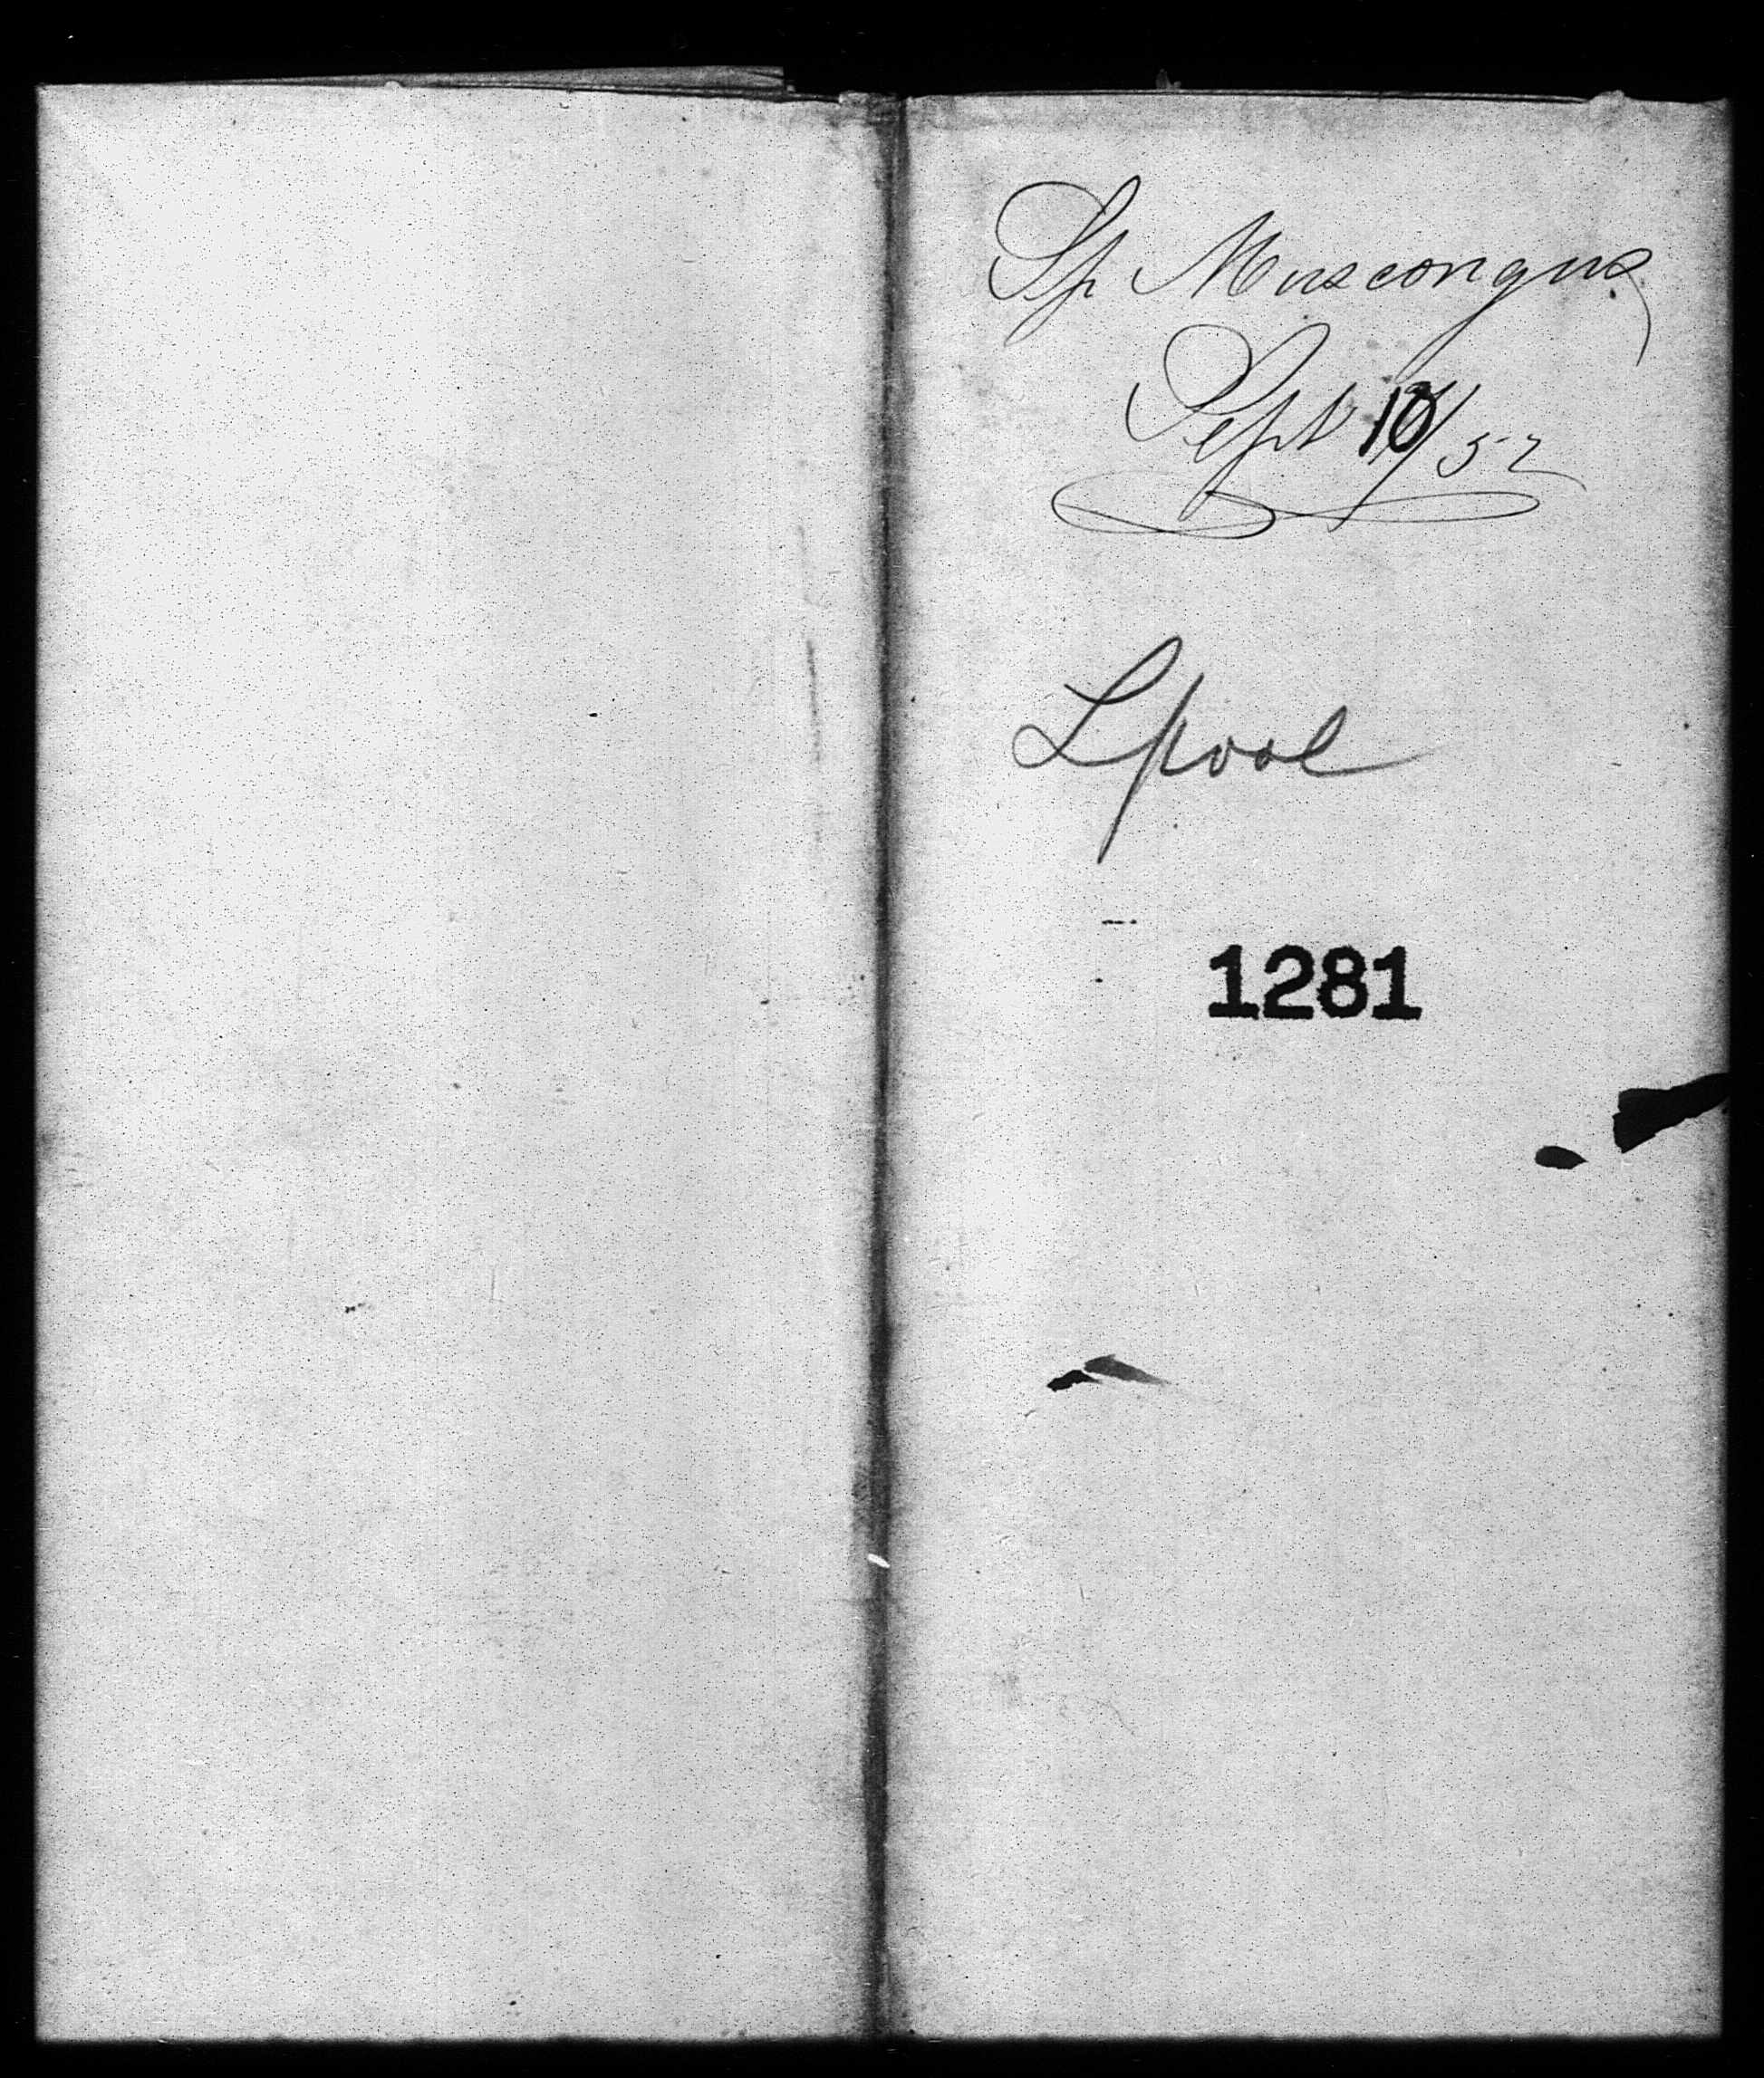 Sp Muscongus
Sept 10/52
Lpool
1281